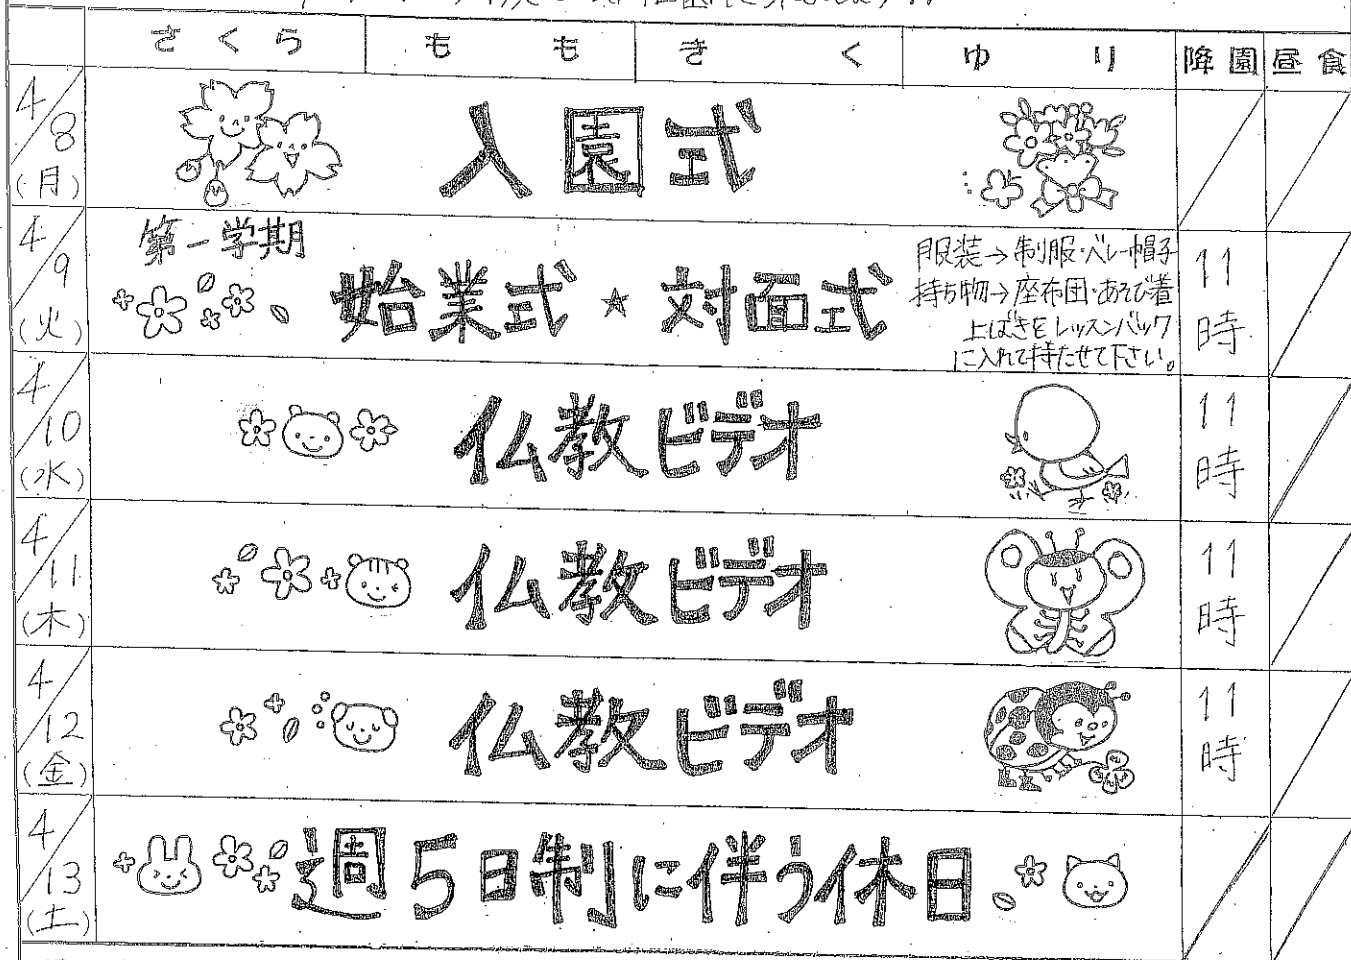 さくら もも きく ゆり 降園 昼食
4/8(月) 入園式
4/9(火) 第一学期 始業式☆対面式
服装→制服・ベレー帽子
持ち物→座布団・あそび着
上ばきをレッスンバック
に入れて持たせて下さい。
11時
4/10(水) 仏教ビデオ 11時
4/11(木) 仏教ビデオ 11時
4/12(金) 仏教ビデオ 11時
4/13(土) 週5日制に伴う休日